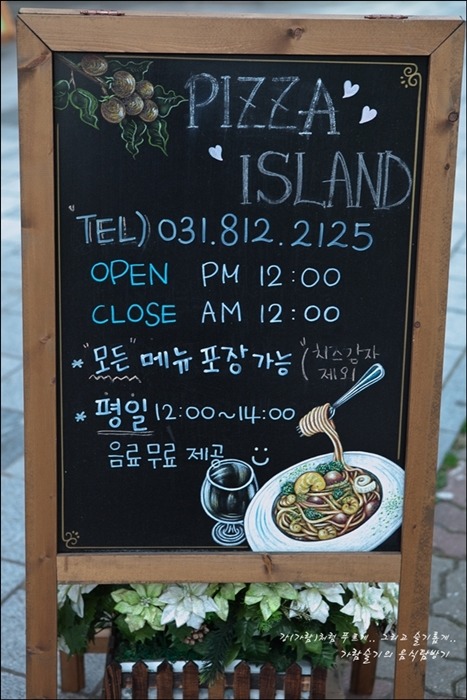 PIZZA
ISLAND
"TEL) 031.812.2125
OPEN PM 12:00
CLOSE AM 12:00
* "모든" 메뉴 포장 가능 (치즈감자
제외)
* 평일 12:00~14:00
음료 무료 제공
가(가람)처럼 푸르게.. 그리고 슬기롭게..
가람슬기의 음식탐방기